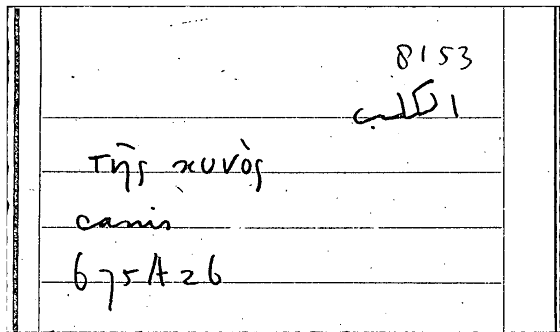 8153
الكلب
τῆς κυνὸς
canis
675A26